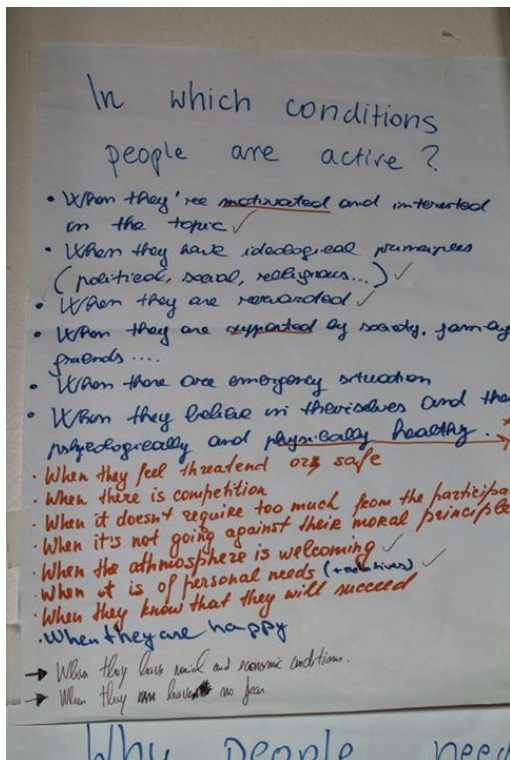 In which conditions
people are active?
• When they're motivated and interested
in the topic ✓
• When they have ideological
(political, social, religious...) ✓
• When they are rewarded ✓
• When they are supported by society, family
friends ....
• When there are emergency situation
• When they believe in theirselves and the
and physically healthy.
· When they feel threatend or safe
· When there is competition
· When it doesn't require too much from the participa
· When it's not going against their moral principle
· When the athmosphere is welcoming ✓
· When it is of personal needs (+relatives) ✓
· When they know that they will succeed
· When they are happy
→ When they have social and economic conditions.
→ When they have no fear
Why people need